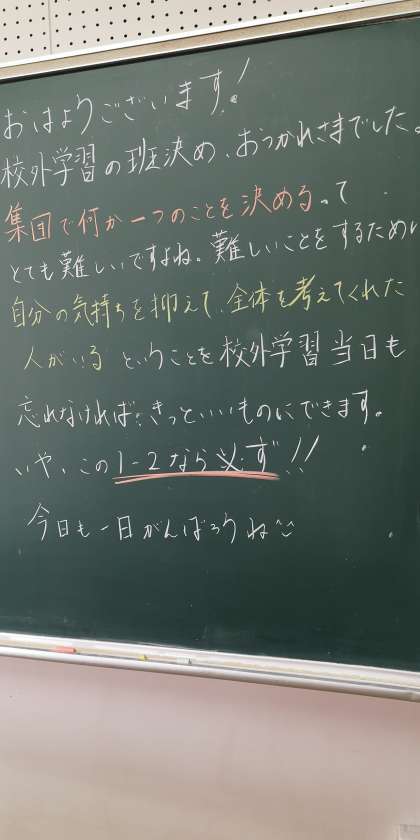 おはようございます!
校外学習の班決め、おつかれさまでした。
集団で何か一つのことを決めるって
とても難しいですよね。難しいことをするために
自分の気持ちを抑えて、全体を考えてくれた
人がいる ということを校外学習当日も
忘れなければ、きっといいものにできます。
いや、この1-2なら必ず!!
今日も一日がんばろうね